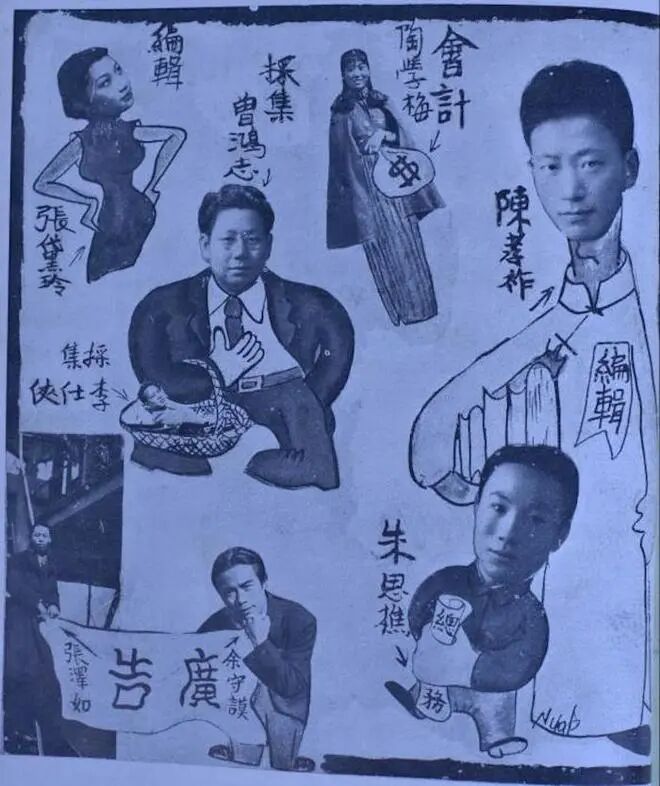 編輯
張黛玲
採集
曾鴻志
會計
陶學梅
陳孝祚
編輯
採集
李仕俠
朱思樵
總
務
廣告
張澤如
余守謨